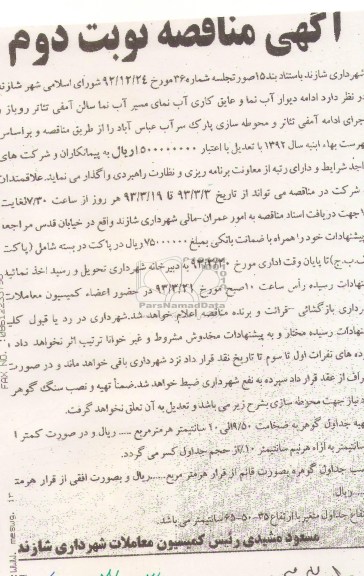 آگهی مناقصه نوبت دوم
شهرداری شازند باستناد بند ۱۵صورتجلسه شماره ۳۶مورخ ۹۲/۱۲/۲۴ شورای اسلامی شهر شازند
در نظر دارد ادامه دیوار آب نما و عایق کاری آب نمای مسیر آب نما سالن آمفی تئاتر روباز و
اجرای ادامه آمفی تئاتر و محوطه سازی پارک سرآب عباس آباد را از طریق مناقصه و براساس
فهرست بهاء ابنیه سال ۱۳۹۲ با تعدیل با اعتبار ۱۵۰۰۰۰۰۰۰۰ریال به پیمانکاران و شرکت های
واجد شرایط و دارای رتبه از معاونت برنامه ریزی و نظارت راهبردی واگذار می نماید.علاقمندان
شرکت در مناقصه می تواند از تاریخ ۹۳/۳/۳ تا ۹۳/۳/۱۹ هر روز از ساعت ۷/۳۰لغایت
جهت دریافت اسناد مناقصه به امور عمران-مالی شهرداری شازند واقع در خیابان قدس مراجعه
پیشنهادات خود را همراه با ضمانت بانکی بمبلغ ۷۵۰۰۰۰۰۰ریال در پاکت در بسته شامل (پاکت
الف.ب.ج)تا پایان وقت اداری مورخ ۹۳/۳/۲۰ به دبیرخانه شهرداری تحویل و رسید اخذ نمائید.
پیشنهادات رسیده رأس ساعت ۱۰صبح مورخ ۹۳/۳/۲۱ در حضور اعضاء کمیسیون معاملات
شهرداری بازگشائی -قرائت و برنده مناقصه اعلام خواهد شد.شهرداری در رد یا قبول کلیه
پیشنهادات رسیده مختار و به پیشنهادات مخدوش مشروط و غیر خوانا ترتیب اثر نخواهد داد
سپرده های نفرات اول تا سوم تا تاریخ عقد قرار داد نزد شهرداری باقی خواهد ماند و در صورت
انصراف از عقد قرار داد سپرده به نفع شهرداری ضبط خواهد شد.ضمناً تهیه و نصب سنگ گوهر
نیاز جهت محوطه سازی بشرح زیر می باشد و تعدیل به آن تعلق نخواهد گرفت.
تهیه جداول گوهر به ضخامت ۹/۵۰الی ۱۰ سانتیمتر هرمترمربع ..... ریال و در صورت کمتر از
سانتیمتر به ازاء هر نیم سانتیمتر ۱۰٪از حجم جداول کسر می گردد.
نصب جداول گوهره بصورت قائم از قرار هرمتر مربع......ریال و بصورت افقی از قرار هرمتر
ریال.
ارتفاع جداول متغیر با ارتفاع ۳۵-۵۰-۶۵ سانتیمتر می باشد.
مسعود مشیدی رئیس کمیسیون معاملات شهرداری شازند
ParsNamadData